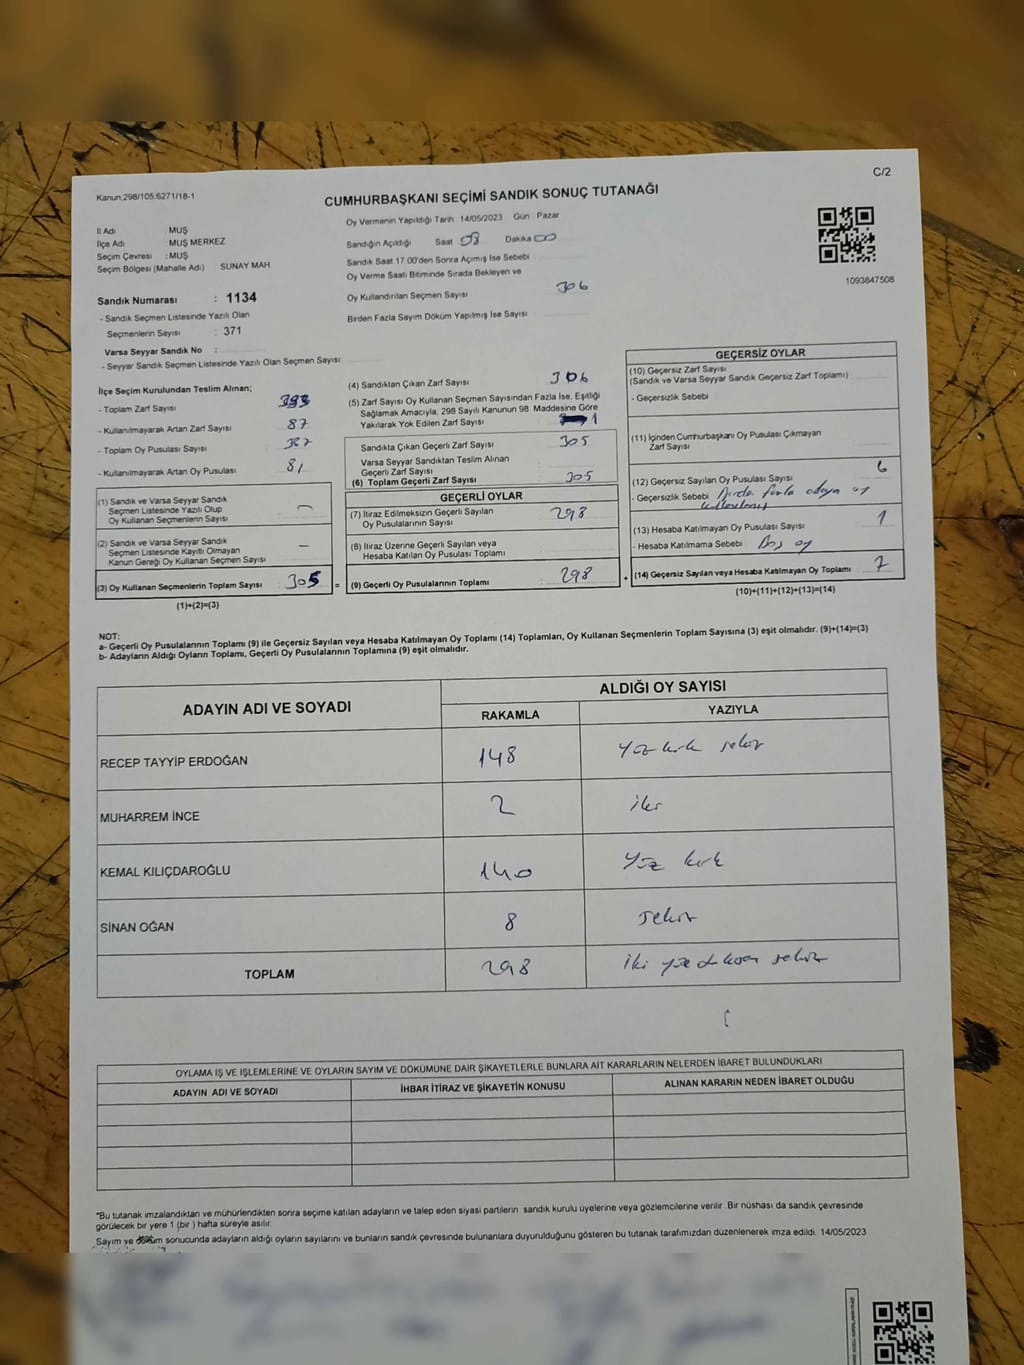 C/2
Kanun:298/105:6271/18-1
CUMHURBAŞKANI SEÇİMİ SANDIK SONUÇ TUTANAĞI
Oy Vermenin Yapıldığı Tarih :14/05/2023 Gün : Pazar
İl Adı MUŞ
İlçe Adı MUŞ MERKEZ
Seçim Çevresi : MUŞ
Seçim Bölgesi (Mahalle Adı) : SUNAY MAH.
Sandığın Açıldığı Saat 08 Dakika 00
Sandık Saat 17.00'den Sonra Açımış İse Sebebi
Oy Verme Saati Bitiminde Sırada Bekleyen ve
Oy Kullandırılan Seçmen Sayısı 306
Birden Fazla Sayım Döküm Yapılmış İse Sayısı
1093847508
Sandık Numarası : 1134
- Sandık Seçmen Listesinde Yazılı Olan
Seçmenlerin Sayısı : 371
Varsa Seyyar Sandık No :
- Seyyar Sandık Seçmen Listesinde Yazılı Olan Seçmen Sayısı
İlçe Seçim Kurulundan Teslim Alınan;
- Toplam Zarf Sayısı
- Kullanılmayarak Artan Zarf Sayısı 87
- Toplam Oy Pusulası Sayısı 387
- Kullanılmayarak Artan Oy Pusulası 81
(1) Sandık ve Varsa Seyyar Sandık
Seçmen Listesinde Yazılı Olup
Oy Kullanan Seçmenlerin Sayısı –
(2) Sandık ve Varsa Seyyar Sandık
Seçmen Listesinde Kayıtlı Olmayan
Kanun Gereği Oy Kullanan Seçmen Sayısı –
(3) Oy Kullanan Seçmenlerin Toplam Sayısı 305 =
(1)+(2)=(3)
(4) Sandıktan Çıkan Zarf Sayısı 306
(5) Zarf Sayısı Oy Kullanan Seçmen Sayısından Fazla İse, Eşitliği
Sağlamak Amacıyla, 298 Sayılı Kanunun 98. Maddesine Göre
Yakılarak Yok Edilen Zarf Sayısı 1
Sandıkta Çıkan Geçerli Zarf Sayısı 305
Varsa Seyyar Sandıktan Teslim Alınan
Geçerli Zarf Sayısı
(6) Toplam Geçerli Zarf Sayısı 305
GEÇERLİ OYLAR
(7) İtiraz Edilmeksizin Geçerli Sayılan
Oy Pusulalarının Sayısı 298
(8) İtiraz Üzerine Geçerli Sayılan veya
Hesaba Katılan Oy Pusulası Toplamı
(9) Geçerli Oy Pusulalarının Toplamı 298 +
GEÇERSİZ OYLAR
(10) Geçersiz Zarf Sayısı
(Sandık ve Varsa Seyyar Sandık Geçersiz Zarf Toplamı)
- Geçersizlik Sebebi
(11) İçinden Cumhurbaşkanı Oy Pusulası Çıkmayan
Zarf Sayısı
(12) Geçersiz Sayılan Oy Pusulası Sayısı 6
- Geçersizlik Sebebi Birden fazla adaya oy
kullanılmış
(13) Hesaba Katılmayan Oy Pusulası Sayısı 1
- Hesaba Katılmama Sebebi Boş oy
(14) Geçersiz Sayılan veya Hesaba Katılmayan Oy Toplamı 7
(10)+(11)+(12)+(13)=(14)
NOT:
a- Geçerli Oy Pusulalarının Toplamı (9) ile Geçersiz Sayılan veya Hesaba Katılmayan Oy Toplamı (14) Toplamları, Oy Kullanan Seçmenlerin Toplam Sayısına (3) eşit olmalıdır. (9)+(14)=(3)
b- Adayların Aldığı Oyların Toplamı, Geçerli Oy Pusulalarının Toplamına (9) eşit olmalıdır.
ADAYIN ADI VE SOYADI ALDIĞI OY SAYISI
RAKAMLA YAZIYLA
RECEP TAYYİP ERDOĞAN 148 yüz kırk sekiz
MUHARREM İNCE 2 iki
KEMAL KILIÇDAROĞLU 140 yüz kırk
SİNAN OĞAN 8 sekiz
TOPLAM 298 iki yüz doksan sekiz
OYLAMA İŞ VE İŞLEMLERİNE VE OYLARIN SAYIM VE DÖKÜMÜNE DAİR ŞİKAYETLERLE BUNLARA AİT KARARLARIN NELERDEN İBARET BULUNDUKLARI
ADAYIN ADI VE SOYADI İHBAR İTİRAZ VE ŞİKAYETİN KONUSU ALINAN KARARIN NEDEN İBARET OLDUĞU
*Bu tutanak imzalandıktan ve mühürlendikten sonra seçime katılan adayların ve talep eden siyasi partilerin sandık kurulu üyelerine veya gözlemcilerine verilir. Bir nüshası da sandık çevresinde
görülecek bir yere 1 (bir) hafta süreyle asılır.
Sayım ve döküm sonucunda adayların aldığı oyların sayılarını ve bunların sandık çevresinde bulunanlara duyurulduğunu gösteren bu tutanak tarafımızdan düzenlenerek imza edildi. 14/05/2023